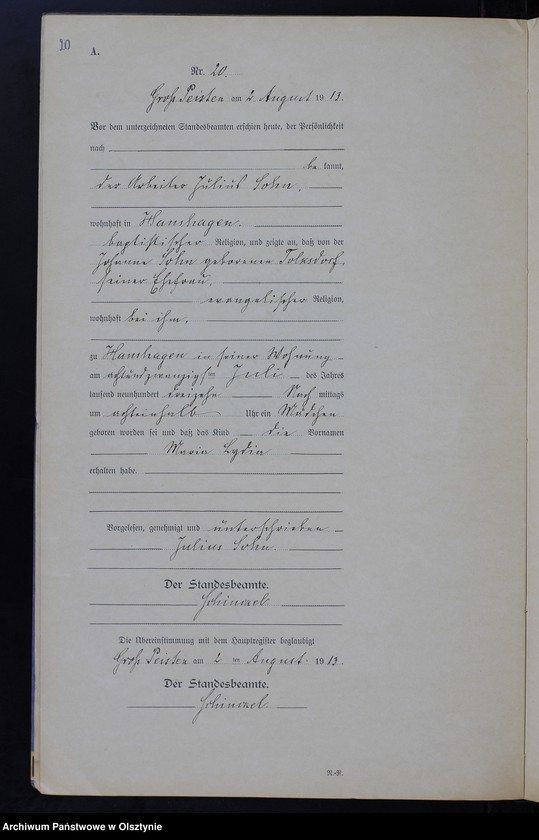 20
A.
Nr. 20.
Groß Peisten am 2. August 1913.
Vor dem unterzeichneten Standesbeamten erschien heute, der Persönlichkeit
nach
be kannt,
der Arbeiter Julius Sohn,
wohnhaft in Hanshagen.
baptistischer Religion, und zeigte an, daß von der
Johanna Sohn geborenen Tolksdorf,
seiner Ehefrau,
evangelischer Religion,
wohnhaft bei ihm,
zu Hanshagen in seiner Wohnung
am achtundzwanzigsten Juli des Jahres
tausend neunhundert dreizehn Nach mittags
um achteinhalb Uhr ein Mädchen
geboren worden sei und daß das Kind die Vornamen
Maria Lydia
erhalten habe.
Vorgelesen, genehmigt und unterschrieben
Julius Sohn.
Der Standesbeamte.
Die Übereinstimmung mit dem Hauptregister beglaubigt
Groß Peisten am 2 ten August 1913.
Der Standesbeamte.
Archiwum Państwowe w Olsztynie